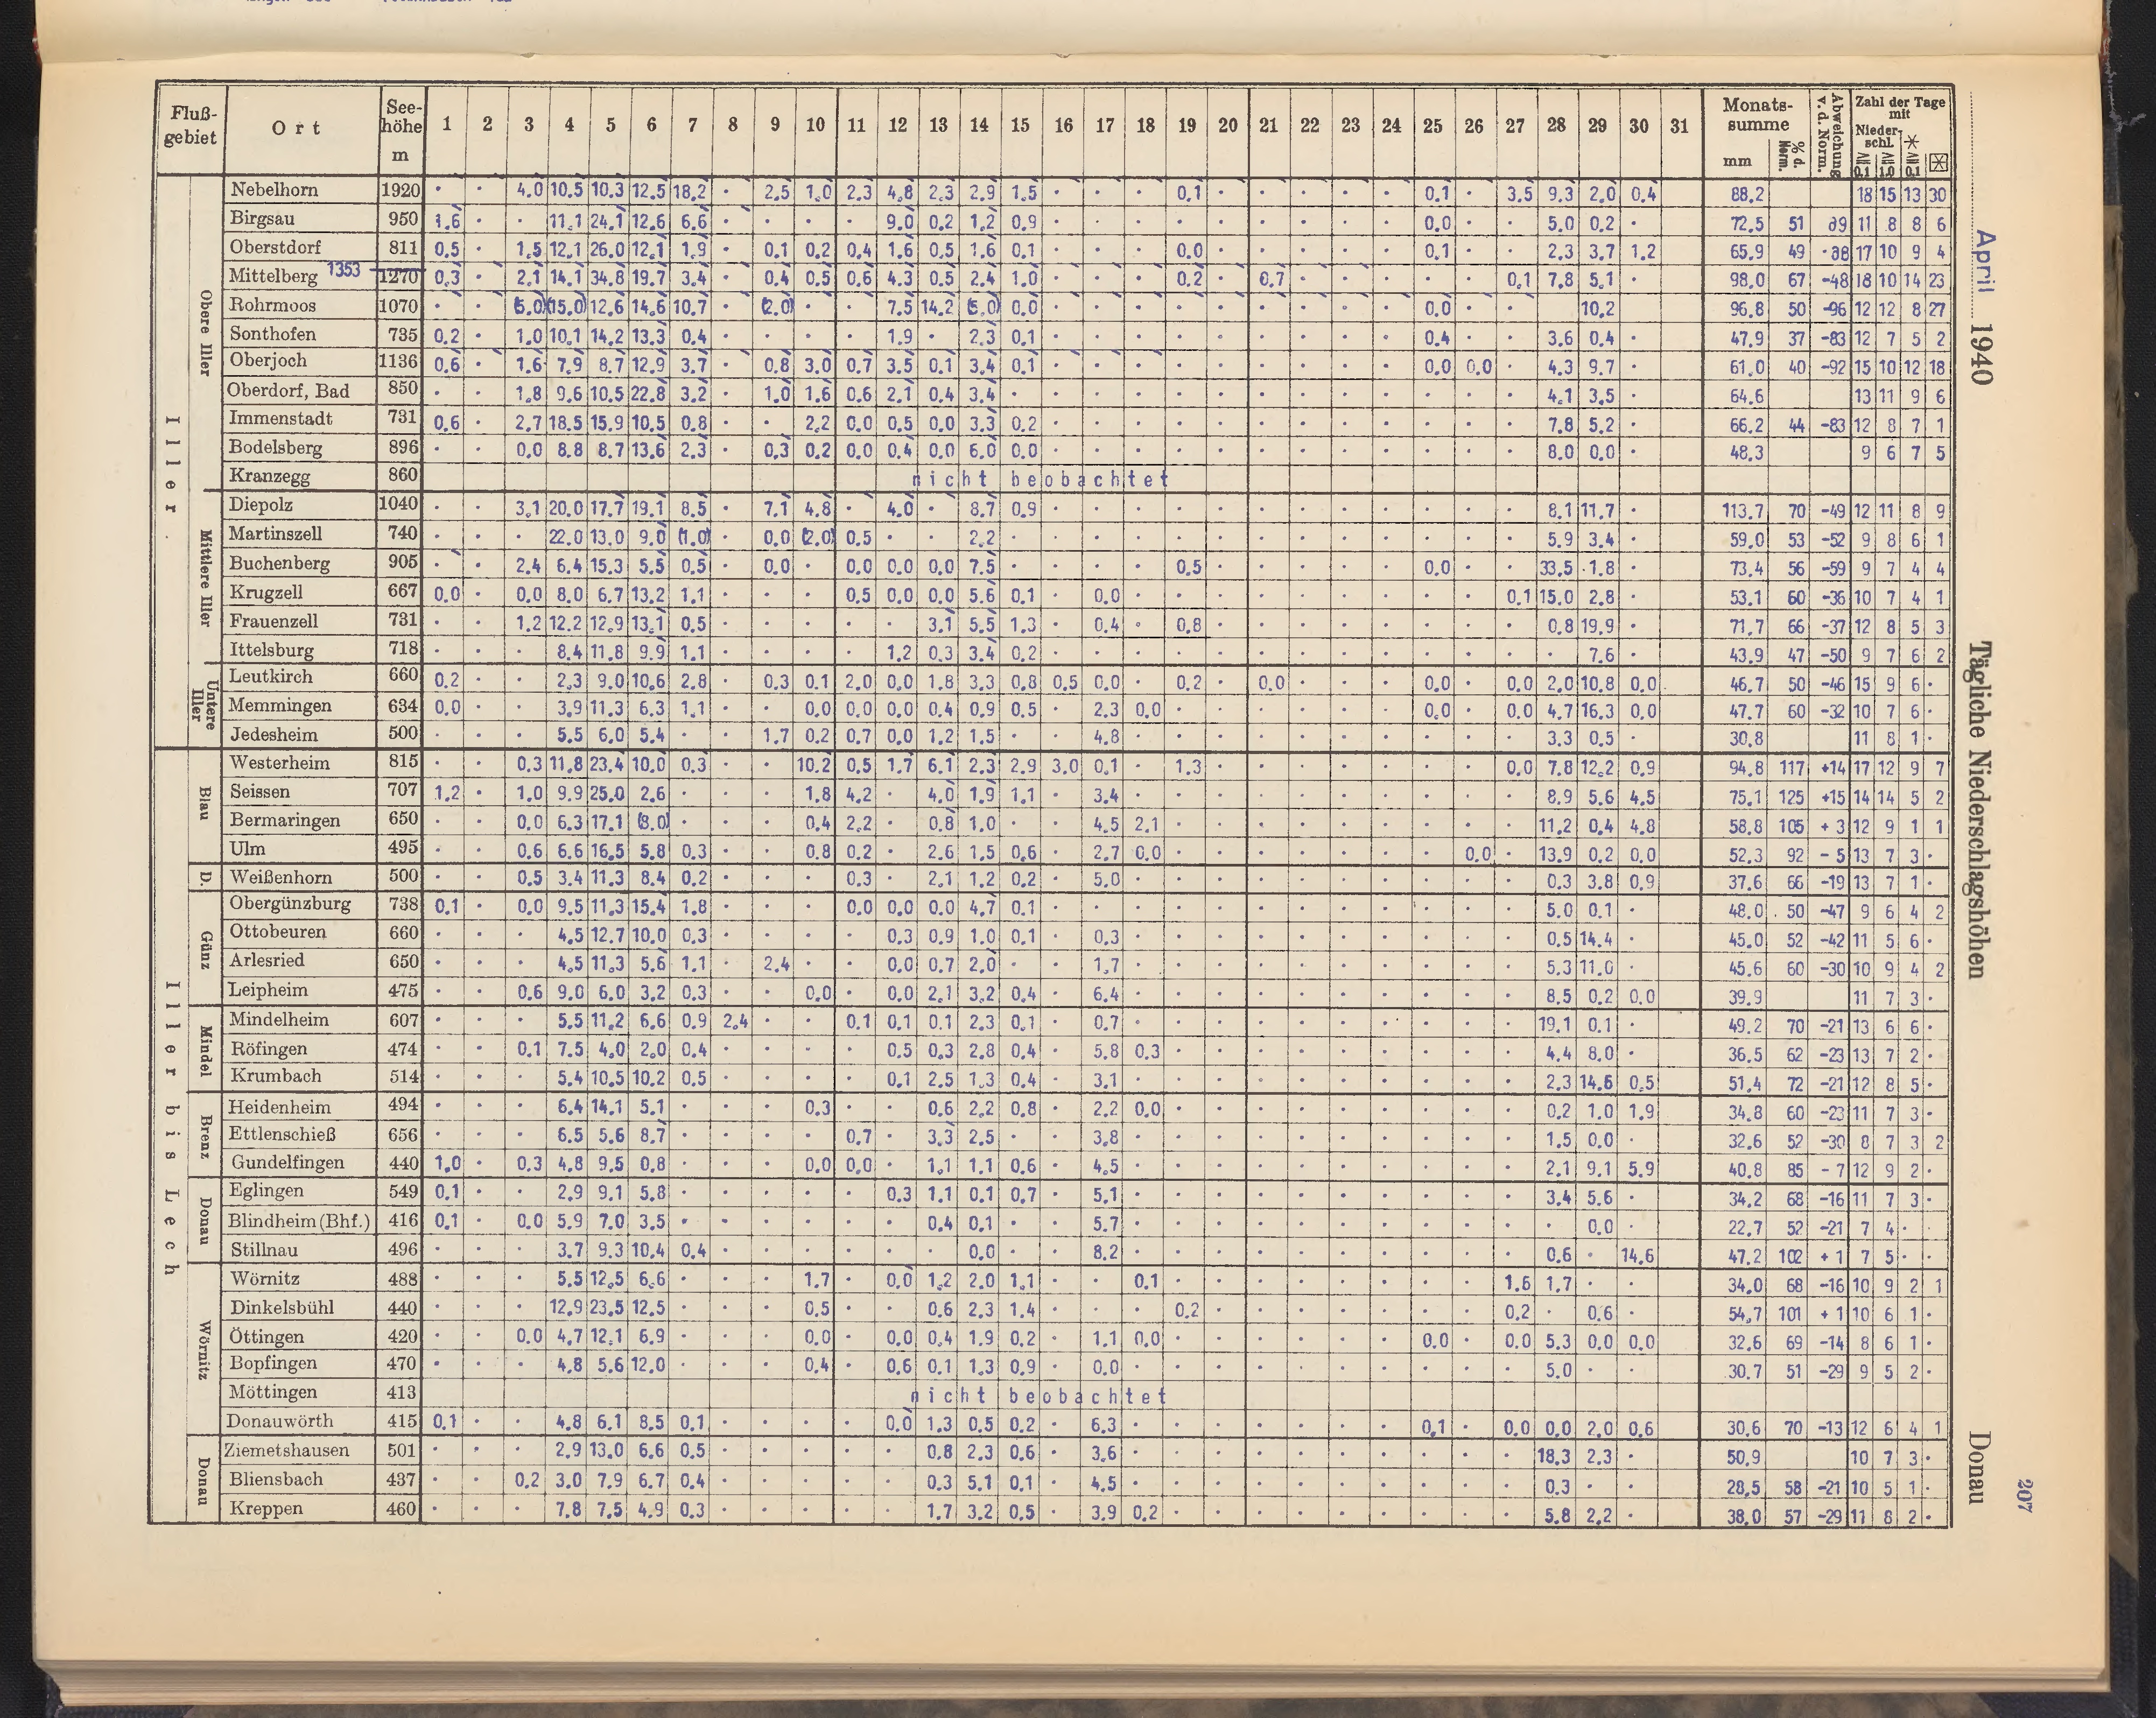 Fluß-gebiet | Ort | Seehöhe m | 1 | 2 | 3 | 4 | 5 | 6 | 7 | 8 | 9 | 10 | 11 | 12 | 13 | 14 | 15 | 16 | 17 | 18 | 19 | 20 | 21 | 22 | 23 | 24 | 25 | 26 | 27 | 28 | 29 | 30 | 31 | Monatssumme mm | % d. Norm. | Abweichung v. d. Norm. | Zahl der Tage mit Niederschl. ≧ 0,1 | ≧ 1,0 | ✱ ≧ 0,1 | ⊠
Iller
Obere Iller
Nebelhorn 1920 · · 4.0 10.5 10.3 12.5 18.2 · 2.5 1.0 2.3 4.8 2.3 2.9 1.5 · · · 0.1 · · · · · 0.1 · 3.5 9.3 2.0 0.4 88.2 18 15 13 30
Birgsau 950 1.6 · · 11.1 24.1 12.6 6.6 · · · · 9.0 0.2 1.2 0.9 · · · · · · · · · 0.0 · · 5.0 0.2 · 72.5 51 89 11 8 8 6
Oberstdorf 811 0.5 · 1.5 12.1 26.0 12.1 1.9 · 0.1 0.2 0.4 1.6 0.5 1.6 0.1 · · · 0.0 · · · · · 0.1 · · 2.3 3.7 1.2 65.9 49 -88 17 10 9 4
Mittelberg 1353 1270 0.3 · 2.1 14.1 34.8 19.7 3.4 · 0.4 0.5 0.6 4.3 0.5 2.4 1.0 · · · 0.2 · 0.7 · · · · · 0.1 7.8 5.1 · 98.0 67 -48 18 10 14 23
Rohrmoos 1070 · · (5.0) (15.0) 12.6 14.6 10.7 · (2.0) · · 7.5 14.2 (5.0) 0.0 · · · · · · · · · 0.0 · · 10.2 96.8 50 -96 12 12 8 27
Sonthofen 735 0.2 · 1.0 10.1 14.2 13.3 0.4 · · · · 1.9 · 2.3 0.1 · · · · · · · · · 0.4 · · 3.6 0.4 · 47.9 37 -83 12 7 5 2
Oberjoch 1136 0.6 · 1.6 7.9 8.7 12.9 3.7 · 0.8 3.0 0.7 3.5 0.1 3.4 0.1 · · · · · · · · · 0.0 0.0 · 4.3 9.7 · 61.0 40 -92 15 10 12 18
Oberdorf, Bad 850 · · 1.8 9.6 10.5 22.8 3.2 · 1.0 1.6 0.6 2.1 0.4 3.4 · · · · · · · · · · · · · 4.1 3.5 · 64.6 13 11 9 6
Immenstadt 731 0.6 · 2.7 18.5 15.9 10.5 0.8 · · 2.2 0.0 0.5 0.0 3.3 0.2 · · · · · · · · · · · · 7.8 5.2 · 66.2 44 -83 12 8 7 1
Bodelsberg 896 · · 0.0 8.8 8.7 13.6 2.3 · 0.3 0.2 0.0 0.4 0.0 6.0 0.0 · · · · · · · · · · · · 8.0 0.0 · 48.3 9 6 7 5
Kranzegg 860 nicht beobachtet
Mittlere Iller
Diepolz 1040 · · 3.1 20.0 17.7 19.1 8.5 · 7.1 4.8 · 4.0 · 8.7 0.9 · · · · · · · · · · · · 8.1 11.7 · 113.7 70 -49 12 11 8 9
Martinszell 740 · · · 22.0 13.0 9.0 (1.0) · 0.0 (2.0) 0.5 · · 2.2 · · · · · · · · · · · · · 5.9 3.4 · 59.0 53 -52 9 8 6 1
Buchenberg 905 · · 2.4 6.4 15.3 5.5 0.5 · 0.0 · 0.0 0.0 0.0 7.5 · · · · 0.5 · · · · · 0.0 · · 33.5 1.8 · 73.4 56 -59 9 7 4 4
Krugzell 667 0.0 · 0.0 8.0 6.7 13.2 1.1 · · · 0.5 0.0 0.0 5.6 0.1 · 0.0 · · · · · · · · · 0.1 15.0 2.8 · 53.1 60 -36 10 7 4 1
Frauenzell 731 · · 1.2 12.2 12.9 13.1 0.5 · · · · · 3.1 5.5 1.3 · 0.4 · 0.8 · · · · · · · · 0.8 19.9 · 71.7 66 -37 12 8 5 3
Ittelsburg 718 · · · 8.4 11.8 9.9 1.1 · · · · 1.2 0.3 3.4 0.2 · · · · · · · · · · · · · 7.6 · 43.9 47 -50 9 7 6 2
Untere Iller
Leutkirch 660 0.2 · · 2.3 9.0 10.6 2.8 · 0.3 0.1 2.0 0.0 1.8 3.3 0.8 0.5 0.0 · 0.2 · 0.0 · · · 0.0 · 0.0 2.0 10.8 0.0 46.7 50 -46 15 9 6 ·
Memmingen 634 0.0 · · 3.9 11.3 6.3 1.1 · · 0.0 0.0 0.0 0.4 0.9 0.5 · 2.3 0.0 · · · · · · 0.0 · 0.0 4.7 16.3 0.0 47.7 60 -32 10 7 6 ·
Jedesheim 500 · · · 5.5 6.0 5.4 · · 1.7 0.2 0.7 0.0 1.2 1.5 · · 4.8 · · · · · · · · · · 3.3 0.5 · 30.8 11 8 1 ·
Iller bis Lech
Blau
Westerheim 815 · · 0.3 11.8 23.4 10.0 0.3 · · 10.2 0.5 1.7 6.1 2.3 2.9 3.0 0.1 · 1.3 · · · · · · · 0.0 7.8 12.2 0.9 94.8 117 +14 17 12 9 7
Seissen 707 1.2 · 1.0 9.9 25.0 2.6 · · · 1.8 4.2 · 4.0 1.9 1.1 · 3.4 · · · · · · · · · · 8.9 5.6 4.5 75.1 125 +15 14 14 5 2
Bermaringen 650 · · 0.0 6.3 17.1 (8.0) · · · 0.4 2.2 · 0.8 1.0 · · 4.5 2.1 · · · · · · · · · 11.2 0.4 4.8 58.8 105 +3 12 9 1 1
Ulm 495 · · 0.6 6.6 16.5 5.8 0.3 · · 0.8 0.2 · 2.6 1.5 0.6 · 2.7 0.0 · · · · · · · 0.0 · 13.9 0.2 0.0 52.3 92 -5 13 7 3 ·
D.
Weißenhorn 500 · · 0.5 3.4 11.3 8.4 0.2 · · · 0.3 · 2.1 1.2 0.2 · 5.0 · · · · · · · · · · 0.3 3.8 0.9 37.6 66 -19 13 7 1 ·
Günz
Obergünzburg 738 0.1 · 0.0 9.5 11.3 15.4 1.8 · · · 0.0 0.0 0.0 4.7 0.1 · · · · · · · · · · · · 5.0 0.1 · 48.0 50 -47 9 6 4 2
Ottobeuren 660 · · · 4.5 12.7 10.0 0.3 · · · · 0.3 0.9 1.0 0.1 · 0.3 · · · · · · · · · · 0.5 14.4 · 45.0 52 -42 11 5 6 ·
Arlesried 650 · · · 4.5 11.3 5.6 1.1 · 2.4 · · 0.0 0.7 2.0 · · 1.7 · · · · · · · · · · 5.3 11.0 · 45.6 60 -30 10 9 4 2
Leipheim 475 · · 0.6 9.0 6.0 3.2 0.3 · · 0.0 · 0.0 2.1 3.2 0.4 · 6.4 · · · · · · · · · · 8.5 0.2 0.0 39.9 11 7 3 ·
Mindel
Mindelheim 607 · · · 5.5 11.2 6.6 0.9 2.4 · · 0.1 0.1 0.1 2.3 0.1 · 0.7 · · · · · · · · · · 19.1 0.1 · 49.2 70 -21 13 6 6 ·
Röfingen 474 · · 0.1 7.5 4.0 2.0 0.4 · · · · 0.5 0.3 2.8 0.4 · 5.8 0.3 · · · · · · · · · 4.4 8.0 · 36.5 62 -23 13 7 2 ·
Krumbach 514 · · · 5.4 10.5 10.2 0.5 · · · · 0.1 2.5 1.3 0.4 · 3.1 · · · · · · · · · · 2.3 14.6 0.5 51.4 72 -21 12 8 5 ·
Brenz
Heidenheim 494 · · · 6.4 14.1 5.1 · · · 0.3 · · 0.6 2.2 0.8 · 2.2 0.0 · · · · · · · · · 0.2 1.0 1.9 34.8 60 -23 11 7 3 ·
Ettlenschieß 656 · · · 6.5 5.6 8.7 · · · · 0.7 · 3.3 2.5 · · 3.8 · · · · · · · · · · 1.5 0.0 · 32.6 52 -30 8 7 3 2
Gundelfingen 440 1.0 · 0.3 4.8 9.5 0.8 · · · 0.0 0.0 · 1.1 1.1 0.6 · 4.5 · · · · · · · · · · 2.1 9.1 5.9 40.8 85 -7 12 9 2 ·
Donau
Eglingen 549 0.1 · · 2.9 9.1 5.8 · · · · · 0.3 1.1 0.1 0.7 · 5.1 · · · · · · · · · · 3.4 5.6 · 34.2 68 -16 11 7 3 ·
Blindheim (Bhf.) 416 0.1 · 0.0 5.9 7.0 3.5 · · · · · · 0.4 0.1 · · 5.7 · · · · · · · · · · · 0.0 · 22.7 52 -21 7 4 · ·
Stillnau 496 · · · 3.7 9.3 10.4 0.4 · · · · · · 0.0 · · 8.2 · · · · · · · · · · 0.6 · 14.6 47.2 102 +1 7 5 · ·
Wörnitz
Wörnitz 488 · · · 5.5 12.5 6.6 · · · 1.7 · 0.0 1.2 2.0 1.1 · · 0.1 · · · · · · · · 1.6 1.7 · · 34.0 68 -16 10 9 2 1
Dinkelsbühl 440 · · · 12.9 23.5 12.5 · · · 0.5 · · 0.6 2.3 1.4 · · · 0.2 · · · · · · · 0.2 · 0.6 · 54.7 101 +1 10 6 1 ·
Öttingen 420 · · 0.0 4.7 12.1 6.9 · · · 0.0 · 0.0 0.4 1.9 0.2 · 1.1 0.0 · · · · · · 0.0 · 0.0 5.3 0.0 0.0 32.6 69 -14 8 6 1 ·
Bopfingen 470 · · · 4.8 5.6 12.0 · · · 0.4 · 0.6 0.1 1.3 0.9 · 0.0 · · · · · · · · · · 5.0 · · 30.7 51 -29 9 5 2 ·
Möttingen 413 nicht beobachtet
Donauwörth 415 0.1 · · 4.8 6.1 8.5 0.1 · · · · 0.0 1.3 0.5 0.2 · 6.3 · · · · · · · 0.1 · 0.0 0.0 2.0 0.6 30.6 70 -13 12 6 4 1
Donau
Ziemetshausen 501 · · · 2.9 13.0 6.6 0.5 · · · · · 0.8 2.3 0.6 · 3.6 · · · · · · · · · · 18.3 2.3 · 50.9 10 7 3 ·
Bliensbach 437 · · 0.2 3.0 7.9 6.7 0.4 · · · · · 0.3 5.1 0.1 · 4.5 · · · · · · · · · · 0.3 · · 28.5 58 -21 10 5 1 ·
Kreppen 460 · · · 7.8 7.5 4.9 0.3 · · · · · 1.7 3.2 0.5 · 3.9 0.2 · · · · · · · · · 5.8 2.2 · 38.0 57 -29 11 8 2 ·
April 1940
Tägliche Niederschlagshöhen
Donau
207